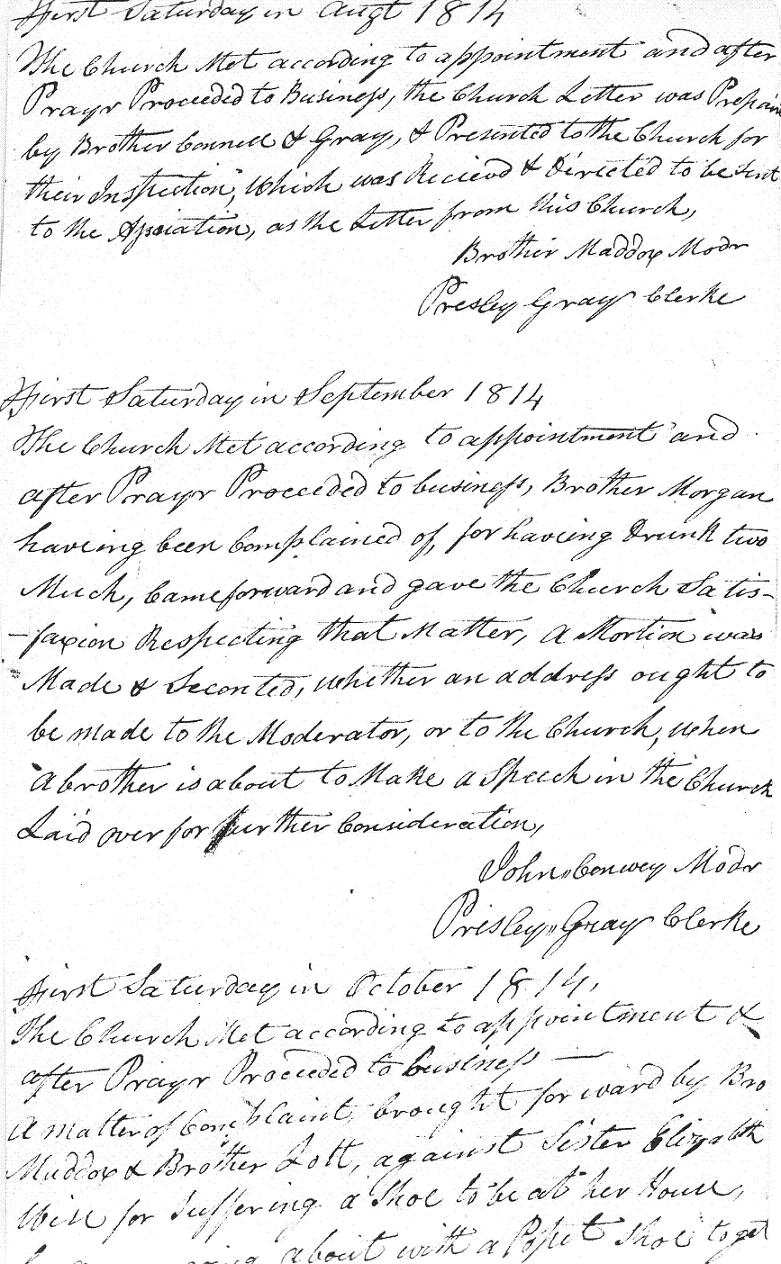 First Saturday in augt 1814
The Church Met according to appointment and after
Prayr Proceeded to Business, the Church Letter was Prepair
by Brother Connell & Gray, & Presented to the Church for
their Inspection, Which was Recievd & Directed to be sent
to the Assiation, as the Letter from this Church,
Brother Maddox Modr
Presley Gray Clerke
First Saturday in September 1814
The Church Met according to appointment and
after Prayr Proceeded to business, Brother Morgan
haveing been Complained of, for having Drunk two
Much, Came forward and gave the Church Satis-
-faxion Respecting that Matter, A Mortion was
Made & Seconted, whether an address ought to
be made to the Moderator, or to the Church, when
A brother is about to Make a Speech in the Church
Laid over for further Consideration,
John Conwey Modr
Presley Gray Clerke
First Saturday in October 1814,
The Church Met according to appointment &
after Prayr Proceeded to business —
A matter of Complaint, brought forward by Bro
Maddox & Brother Lott, against Sister Elizabth
Wise for Suffering a Shoe to be at her House,
about with a Popet Shoe to get